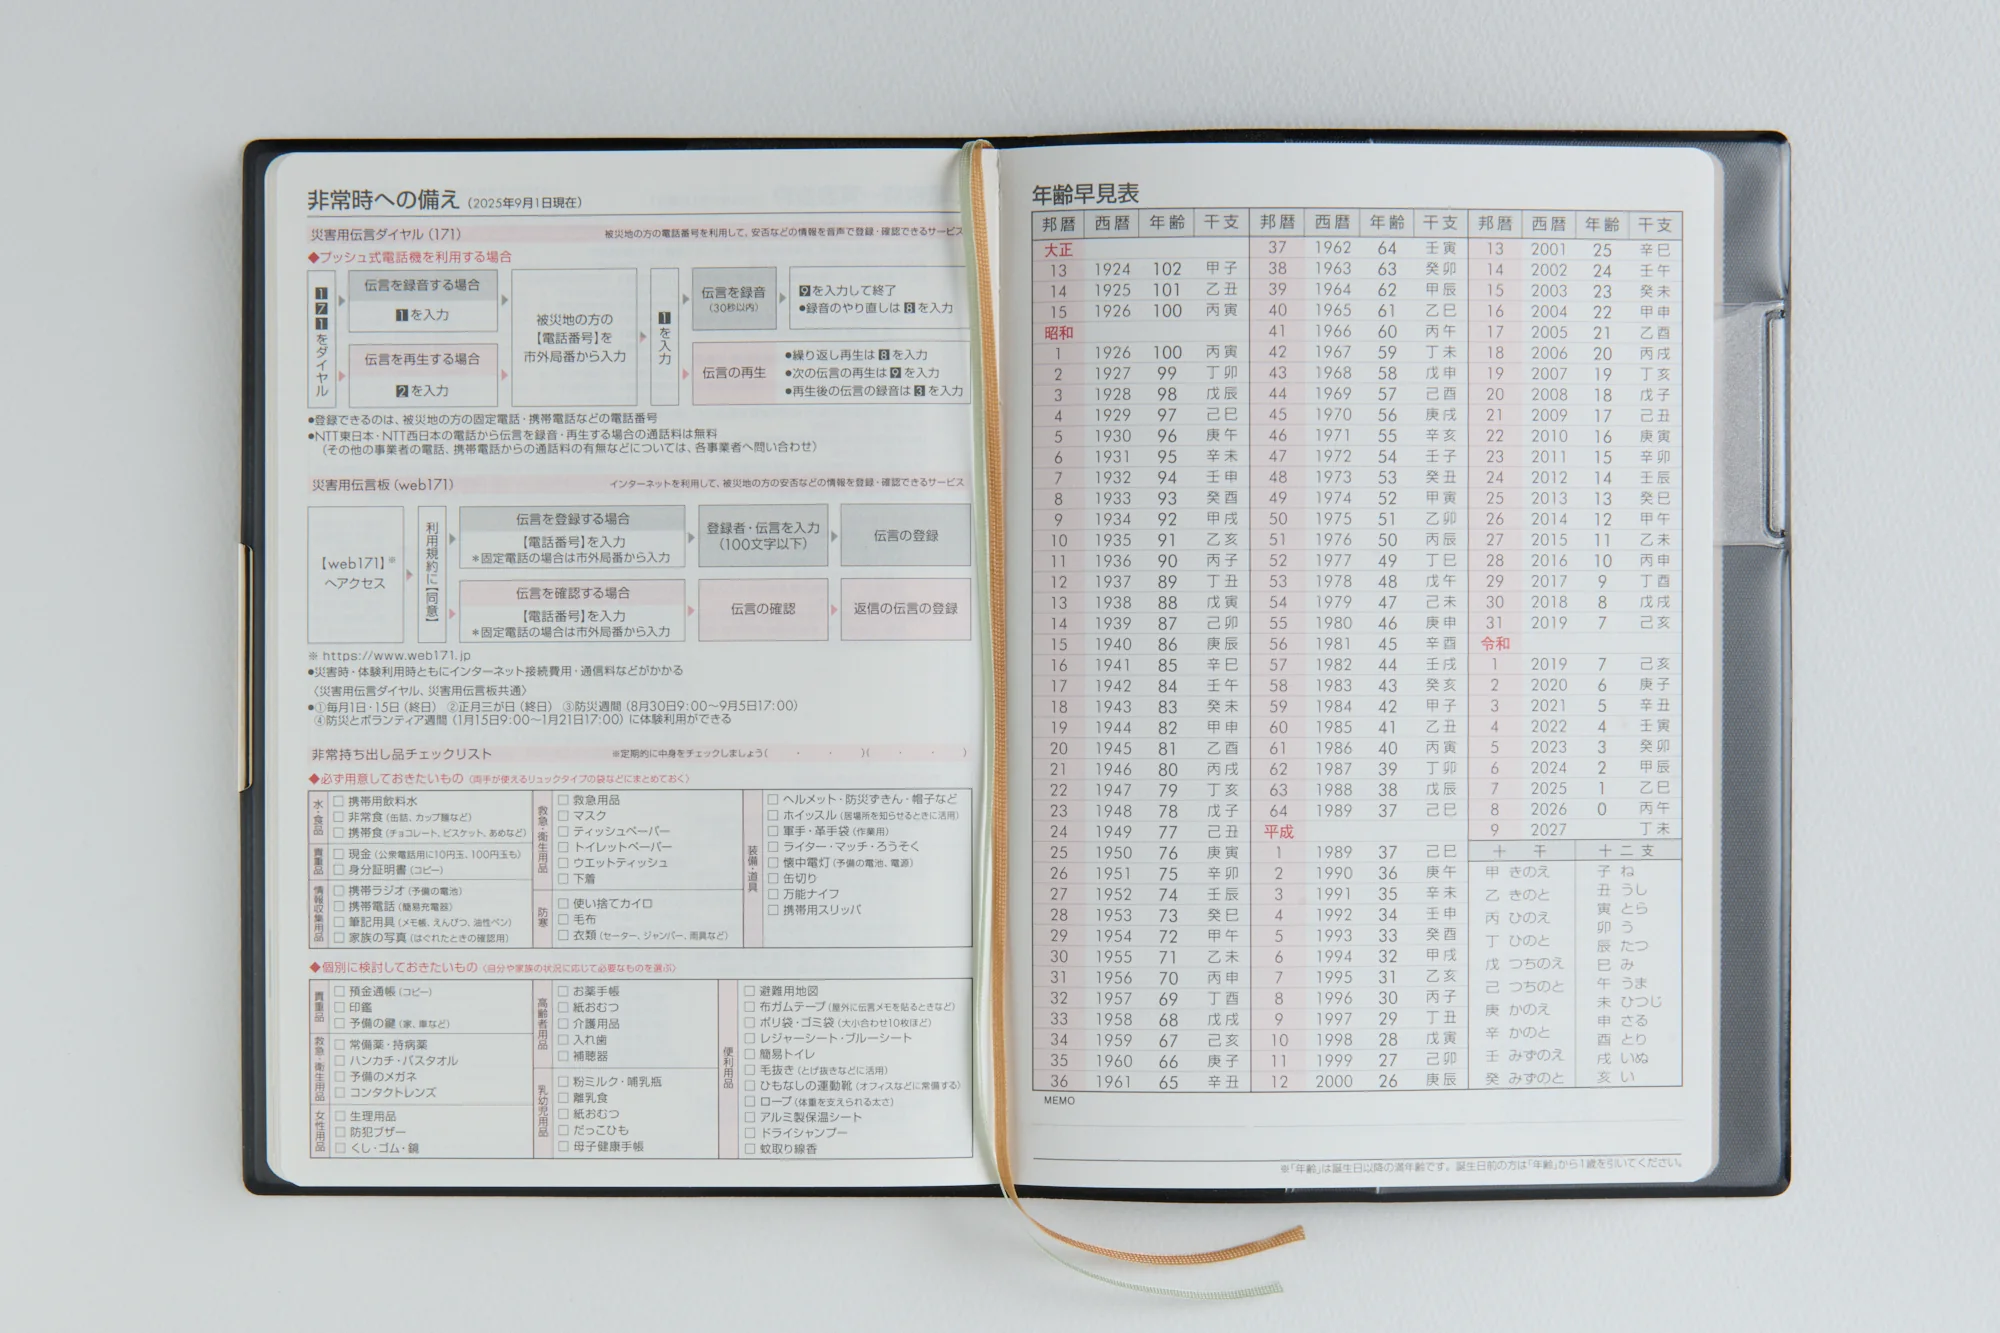 非常時への備え（2025年9月1日現在）
災害用伝言ダイヤル（171） 被災地の方の電話番号を利用して、安否などの情報を音声で登録・確認できるサービス
◆プッシュ式電話機を利用する場合
171をダイヤル
伝言を録音する場合
1を入力
伝言を再生する場合
2を入力
被災地の方の
【電話番号】を
市外局番から入力
1を入力
伝言を録音
（30秒以内）
9を入力して終了
●録音のやり直しは8を入力
伝言の再生
●繰り返し再生は8を入力
●次の伝言の再生は9を入力
●再生後の伝言の録音は3を入力
●登録できるのは、被災地の方の固定電話・携帯電話などの電話番号
●NTT東日本・NTT西日本の電話から伝言を録音・再生する場合の通話料は無料
（その他の事業者の電話、携帯電話からの通話料の有無などについては、各事業者へ問い合わせ）
災害用伝言板（web171） インターネットを利用して、被災地の方の安否などの情報を登録・確認できるサービス
【web171】※
へアクセス
利用規約に【同意】
伝言を登録する場合
【電話番号】を入力
＊固定電話の場合は市外局番から入力
登録者・伝言を入力
（100文字以下）
伝言の登録
伝言を確認する場合
【電話番号】を入力
＊固定電話の場合は市外局番から入力
伝言の確認
返信の伝言の登録
※ https://www.web171.jp
●災害時・体験利用時ともにインターネット接続費用・通信料などがかかる
〈災害用伝言ダイヤル、災害用伝言板共通〉
●①毎月1日・15日（終日） ②正月三が日（終日） ③防災週間（8月30日9：00〜9月5日17：00）
④防災とボランティア週間（1月15日9：00〜1月21日17：00）に体験利用ができる
非常持ち出し品チェックリスト ※定期的に中身をチェックしましょう（ ・ ・ ）（ ・ ・ ）
◆必ず用意しておきたいもの（両手が使えるリュックタイプの袋などにまとめておく）
水・食品
□ 携帯用飲料水
□ 非常食（缶詰、カップ麺など）
□ 携帯食（チョコレート、ビスケット、あめなど）
貴重品
□ 現金（公衆電話用に10円玉、100円玉も）
□ 身分証明書（コピー）
情報収集用品
□ 携帯ラジオ（予備の電池）
□ 携帯電話（簡易充電器）
□ 筆記用具（メモ帳、えんぴつ、油性ペン）
□ 家族の写真（はぐれたときの確認用）
救急・衛生用品
□ 救急用品
□ マスク
□ ティッシュペーパー
□ トイレットペーパー
□ ウエットティッシュ
□ 下着
防寒
□ 使い捨てカイロ
□ 毛布
□ 衣類（セーター、ジャンパー、雨具など）
装備・道具
□ ヘルメット・防災ずきん・帽子など
□ ホイッスル（居場所を知らせるときに活用）
□ 軍手・革手袋（作業用）
□ ライター・マッチ・ろうそく
□ 懐中電灯（予備の電池、電源）
□ 缶切り
□ 万能ナイフ
□ 携帯用スリッパ
◆個別に検討しておきたいもの（自分や家族の状況に応じて必要なものを選ぶ）
貴重品
□ 預金通帳（コピー）
□ 印鑑
□ 予備の鍵（家、車など）
救急・衛生用品
□ 常備薬・持病薬
□ ハンカチ・バスタオル
□ 予備のメガネ
□ コンタクトレンズ
女性用品
□ 生理用品
□ 防犯ブザー
□ くし・ゴム・鏡
高齢者用品
□ お薬手帳
□ 紙おむつ
□ 介護用品
□ 入れ歯
□ 補聴器
乳幼児用品
□ 粉ミルク・哺乳瓶
□ 離乳食
□ 紙おむつ
□ だっこひも
□ 母子健康手帳
便利用品
□ 避難用地図
□ 布ガムテープ（屋外に伝言メモを貼るときなど）
□ ポリ袋・ゴミ袋（大小合わせ10枚ほど）
□ レジャーシート・ブルーシート
□ 簡易トイレ
□ 毛抜き（とげ抜きなどに活用）
□ ひもなしの運動靴（オフィスなどに常備する）
□ ロープ（体重を支えられる太さ）
□ アルミ製保温シート
□ ドライシャンプー
□ 蚊取り線香
年齢早見表
邦暦 西暦 年齢 干支
大正
13 1924 102 甲子
14 1925 101 乙丑
15 1926 100 丙寅
昭和
1 1926 100 丙寅
2 1927 99 丁卯
3 1928 98 戊辰
4 1929 97 己巳
5 1930 96 庚午
6 1931 95 辛未
7 1932 94 壬申
8 1933 93 癸酉
9 1934 92 甲戌
10 1935 91 乙亥
11 1936 90 丙子
12 1937 89 丁丑
13 1938 88 戊寅
14 1939 87 己卯
15 1940 86 庚辰
16 1941 85 辛巳
17 1942 84 壬午
18 1943 83 癸未
19 1944 82 甲申
20 1945 81 乙酉
21 1946 80 丙戌
22 1947 79 丁亥
23 1948 78 戊子
24 1949 77 己丑
25 1950 76 庚寅
26 1951 75 辛卯
27 1952 74 壬辰
28 1953 73 癸巳
29 1954 72 甲午
30 1955 71 乙未
31 1956 70 丙申
32 1957 69 丁酉
33 1958 68 戊戌
34 1959 67 己亥
35 1960 66 庚子
36 1961 65 辛丑
邦暦 西暦 年齢 干支
37 1962 64 壬寅
38 1963 63 癸卯
39 1964 62 甲辰
40 1965 61 乙巳
41 1966 60 丙午
42 1967 59 丁未
43 1968 58 戊申
44 1969 57 己酉
45 1970 56 庚戌
46 1971 55 辛亥
47 1972 54 壬子
48 1973 53 癸丑
49 1974 52 甲寅
50 1975 51 乙卯
51 1976 50 丙辰
52 1977 49 丁巳
53 1978 48 戊午
54 1979 47 己未
55 1980 46 庚申
56 1981 45 辛酉
57 1982 44 壬戌
58 1983 43 癸亥
59 1984 42 甲子
60 1985 41 乙丑
61 1986 40 丙寅
62 1987 39 丁卯
63 1988 38 戊辰
64 1989 37 己巳
平成
1 1989 37 己巳
2 1990 36 庚午
3 1991 35 辛未
4 1992 34 壬申
5 1993 33 癸酉
6 1994 32 甲戌
7 1995 31 乙亥
8 1996 30 丙子
9 1997 29 丁丑
10 1998 28 戊寅
11 1999 27 己卯
12 2000 26 庚辰
邦暦 西暦 年齢 干支
13 2001 25 辛巳
14 2002 24 壬午
15 2003 23 癸未
16 2004 22 甲申
17 2005 21 乙酉
18 2006 20 丙戌
19 2007 19 丁亥
20 2008 18 戊子
21 2009 17 己丑
22 2010 16 庚寅
23 2011 15 辛卯
24 2012 14 壬辰
25 2013 13 癸巳
26 2014 12 甲午
27 2015 11 乙未
28 2016 10 丙申
29 2017 9 丁酉
30 2018 8 戊戌
31 2019 7 己亥
令和
1 2019 7 己亥
2 2020 6 庚子
3 2021 5 辛丑
4 2022 4 壬寅
5 2023 3 癸卯
6 2024 2 甲辰
7 2025 1 乙巳
8 2026 0 丙午
9 2027 丁未
十干
甲 きのえ
乙 きのと
丙 ひのえ
丁 ひのと
戊 つちのえ
己 つちのと
庚 かのえ
辛 かのと
壬 みずのえ
癸 みずのと
十二支
子 ね
丑 うし
寅 とら
卯 う
辰 たつ
巳 み
午 うま
未 ひつじ
申 さる
酉 とり
戌 いぬ
亥 い
MEMO
※「年齢」は誕生日以降の満年齢です。誕生日前の方は「年齢」から1歳を引いてください。